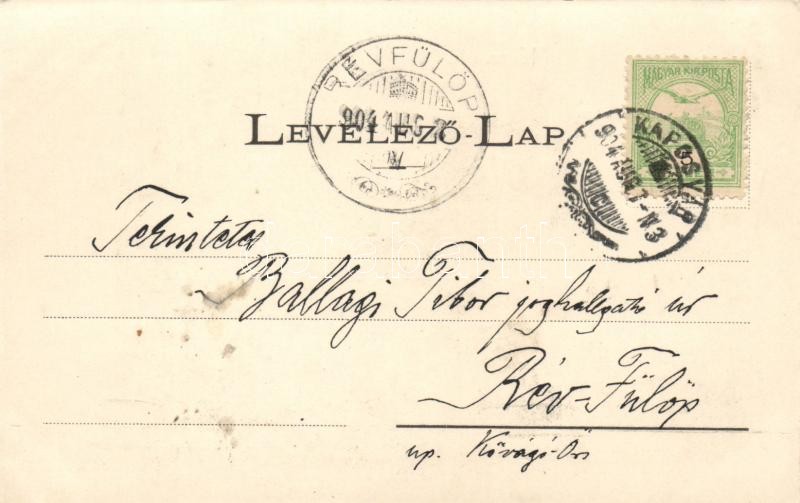 RÉVFÜLÖP
904 AUG
MAGYAR KIR. POSTA
LEVELEZŐ-LAP
KAPOSVÁR
904 AUG. 7 - N3
Tekintetes
Ballagi Tibor joghallgató úr
Rév-Fülöp
up. Kővágó-Örs